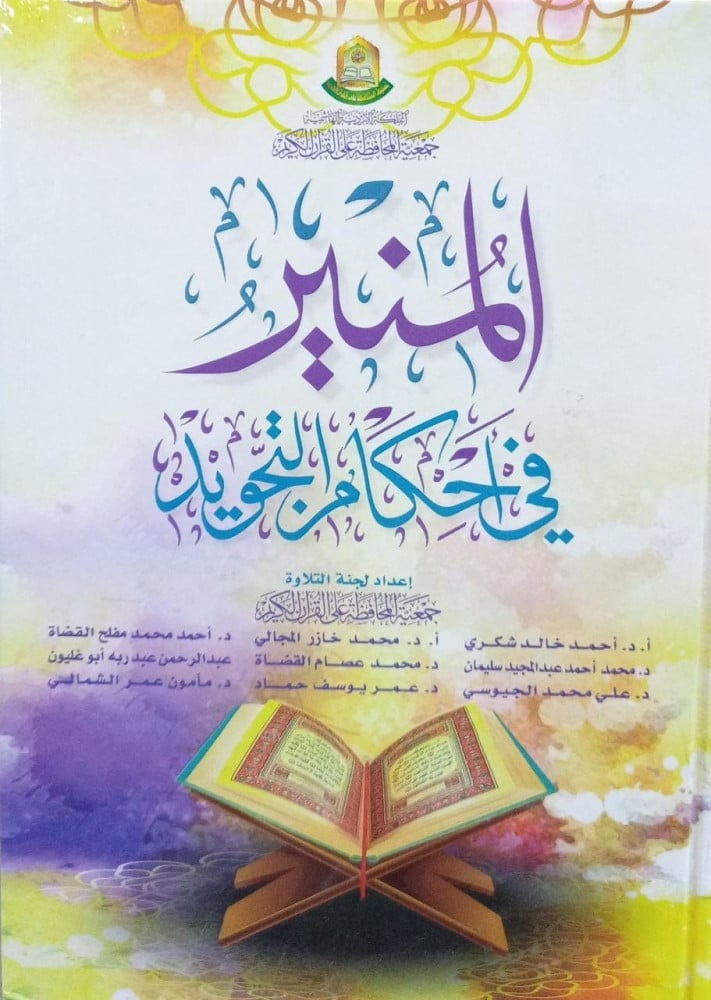 المملكة الأردنية الهاشمية
جمعية المحافظة على القرآن الكريم
المنير
في أحكام التجويد
إعداد لجنة التلاوة
جمعية المحافظة على القرآن الكريم
أ. د. أحمد خالد شكري أ. د. محمد خازر المجالي د. أحمد محمد مفلح القضاة
د. محمد أحمد عبدالمجيد سليمان د. محمد عصام القضاة عبدالرحمن عبدربه أبو غليون
د. علي محمد الجيوسي د. عمر يوسف حماد د. مأمون عمر الشمالي